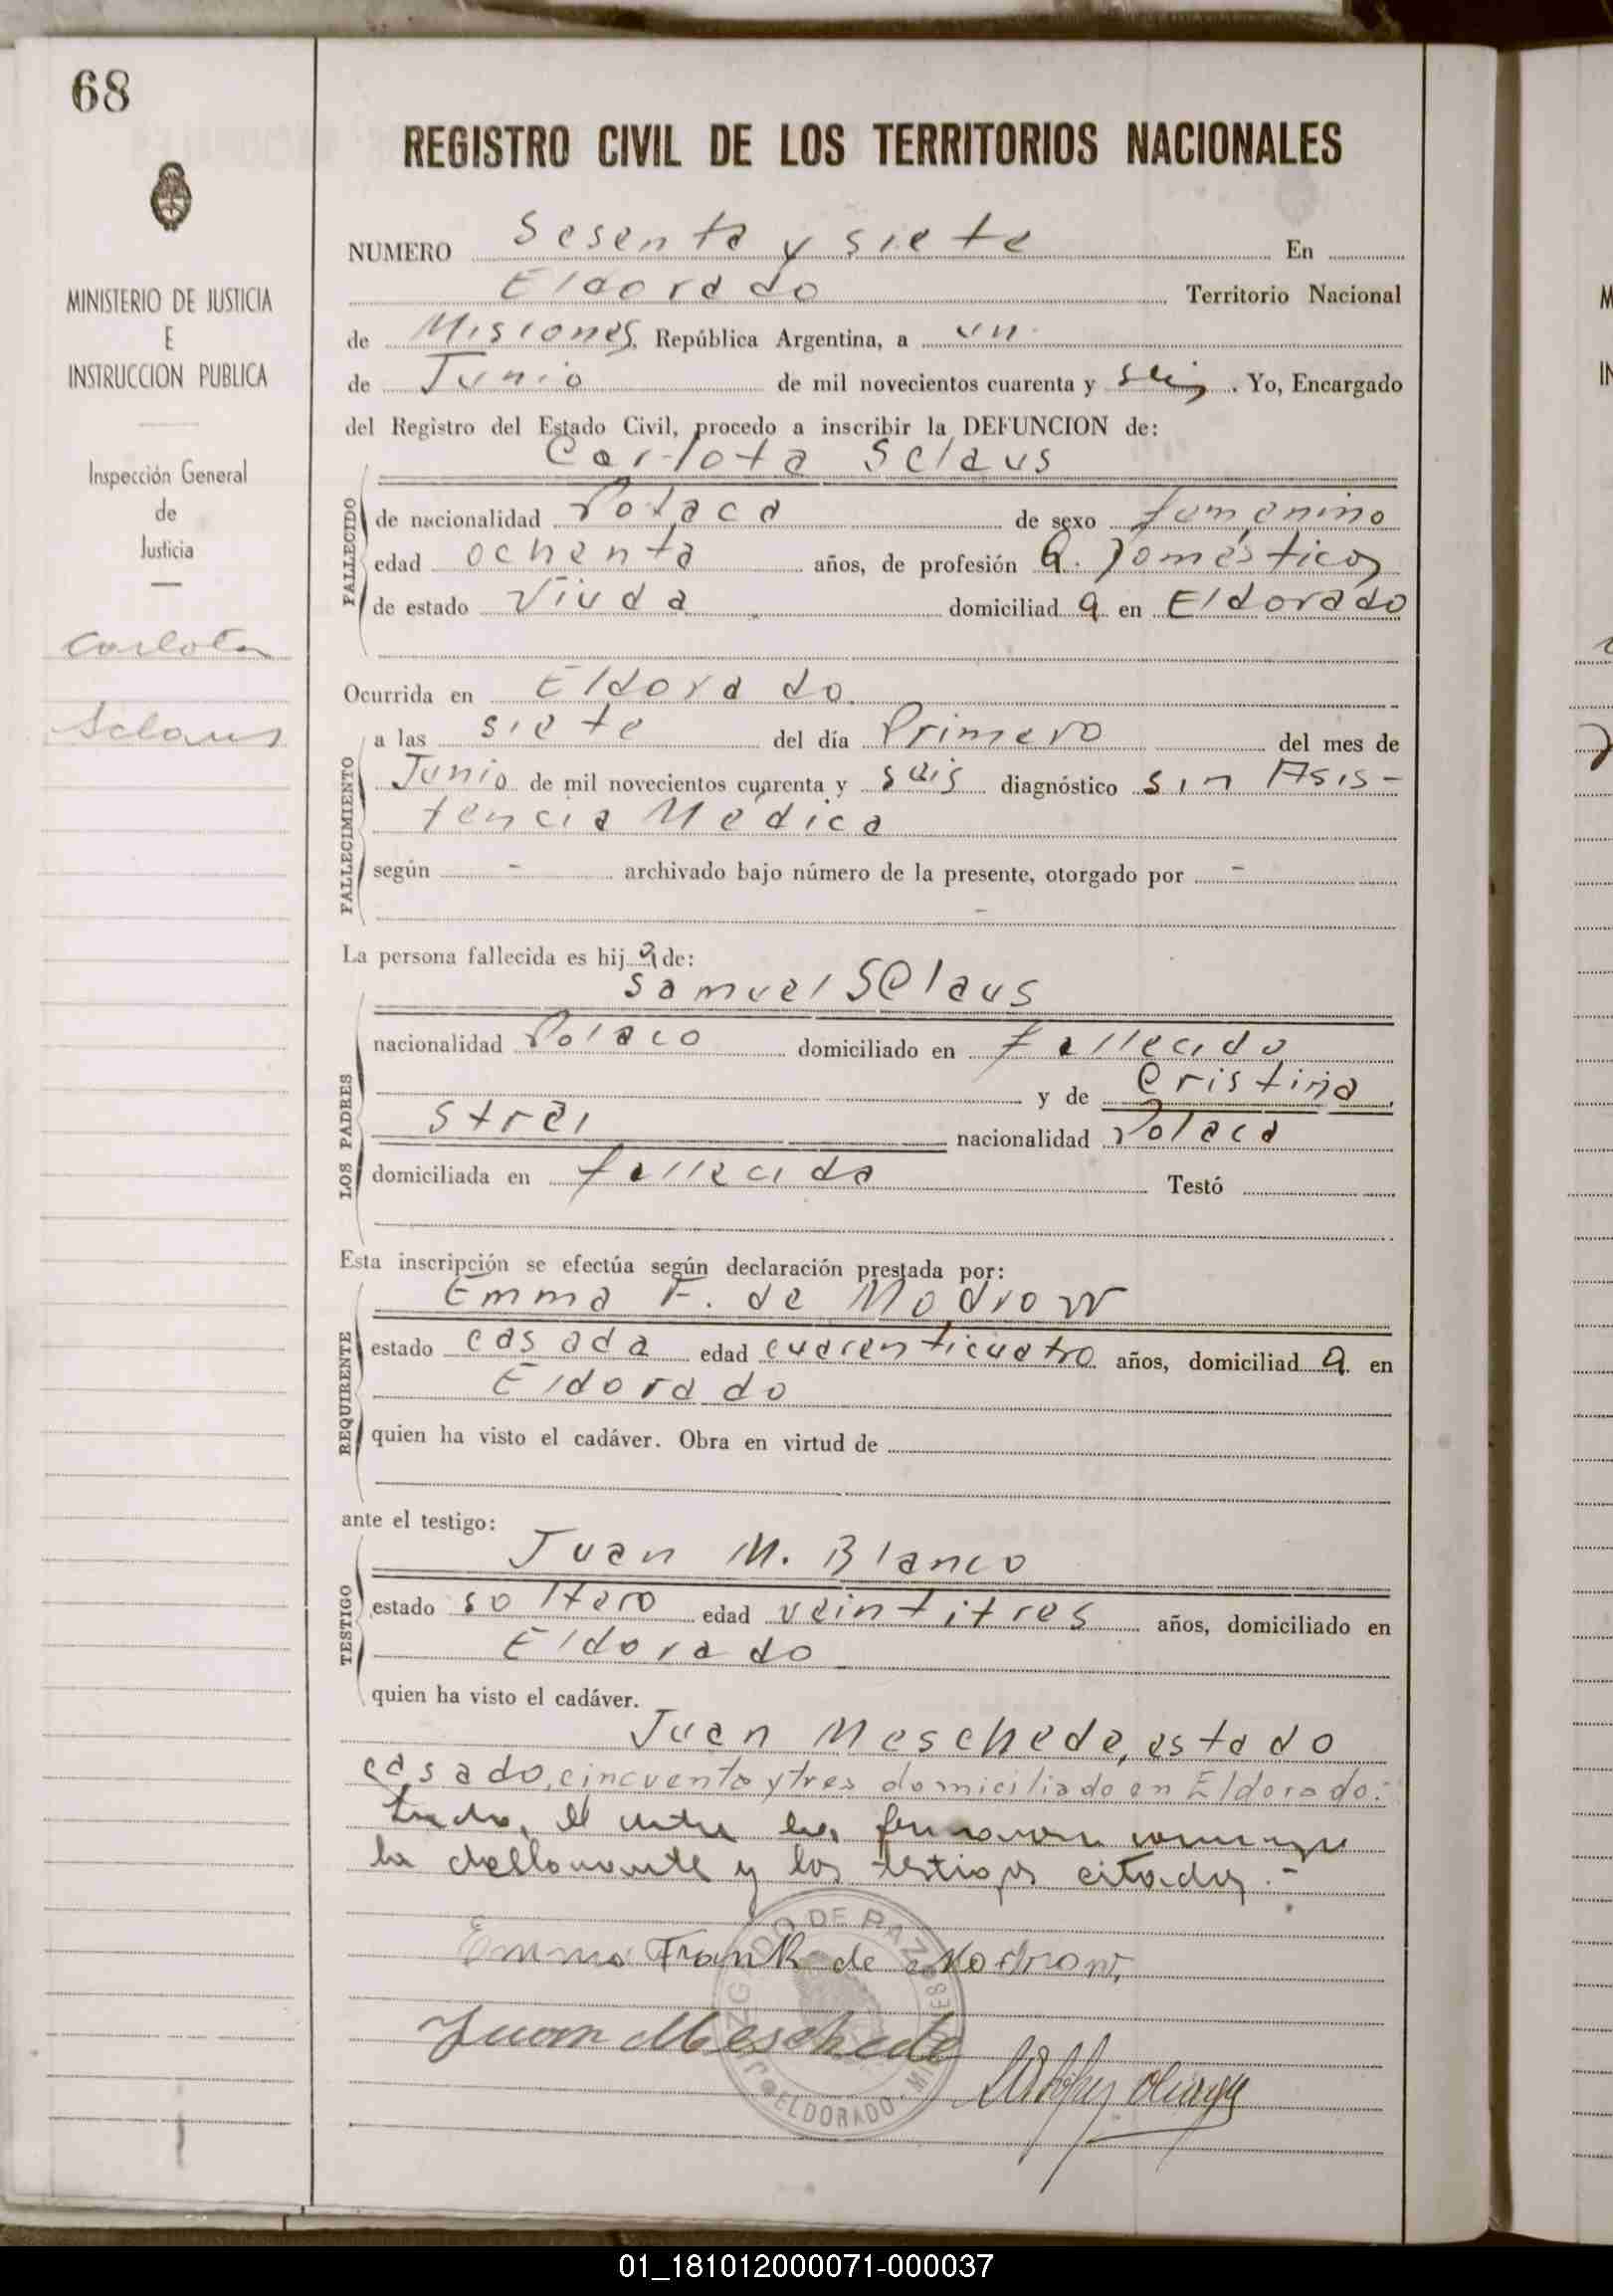 68
MINISTERIO DE JUSTICIA
E
INSTRUCCION PUBLICA
Inspección General
de
Justicia
Carlota
Sclaus
REGISTRO CIVIL DE LOS TERRITORIOS NACIONALES
NUMERO Sesenta y siete En
Eldorado Territorio Nacional
de Misiones, República Argentina, a un
de Junio de mil novecientos cuarenta y seis. Yo, Encargado
del Registro del Estado Civil, procedo a inscribir la DEFUNCION de:
Carlota Sclaus
FALLECIDO
de nacionalidad Polaca de sexo femenino
edad ochenta años, de profesión Q. Domésticos
de estado Viuda domiciliad a en Eldorado
Ocurrida en Eldorado.
FALLECIMIENTO
a las siete del día Primero del mes de
Junio de mil novecientos cuarenta y seis diagnóstico sin Asis-
tencia Medica
según - archivado bajo número de la presente, otorgado por -
-
La persona fallecida es hij a de:
LOS PADRES
Samuel Sclaus
nacionalidad Polaco domiciliado en fallecido
y de Cristina
Strei nacionalidad Polaca
domiciliada en fallecida Testó
Esta inscripción se efectúa según declaración prestada por:
REQUIRENTE
Emma F. de Modrow
estado casada edad cuarenticuatro años, domiciliad a en
Eldorado
quien ha visto el cadáver. Obra en virtud de
ante el testigo:
TESTIGO
Juan M. Blanco
estado soltero edad veintitres años, domiciliado en
Eldorado
quien ha visto el cadáver.
Juan Meschede, estado
casado, cincuenta y tres domiciliado en Eldorado.-
el firmaron conmigo
la declarante y los testigos citados.-
Emma Frank de Modrow.
Juan Meschede
JUZGADO DE PAZ
ELDORADO - MISIONES
01_181012000071-000037